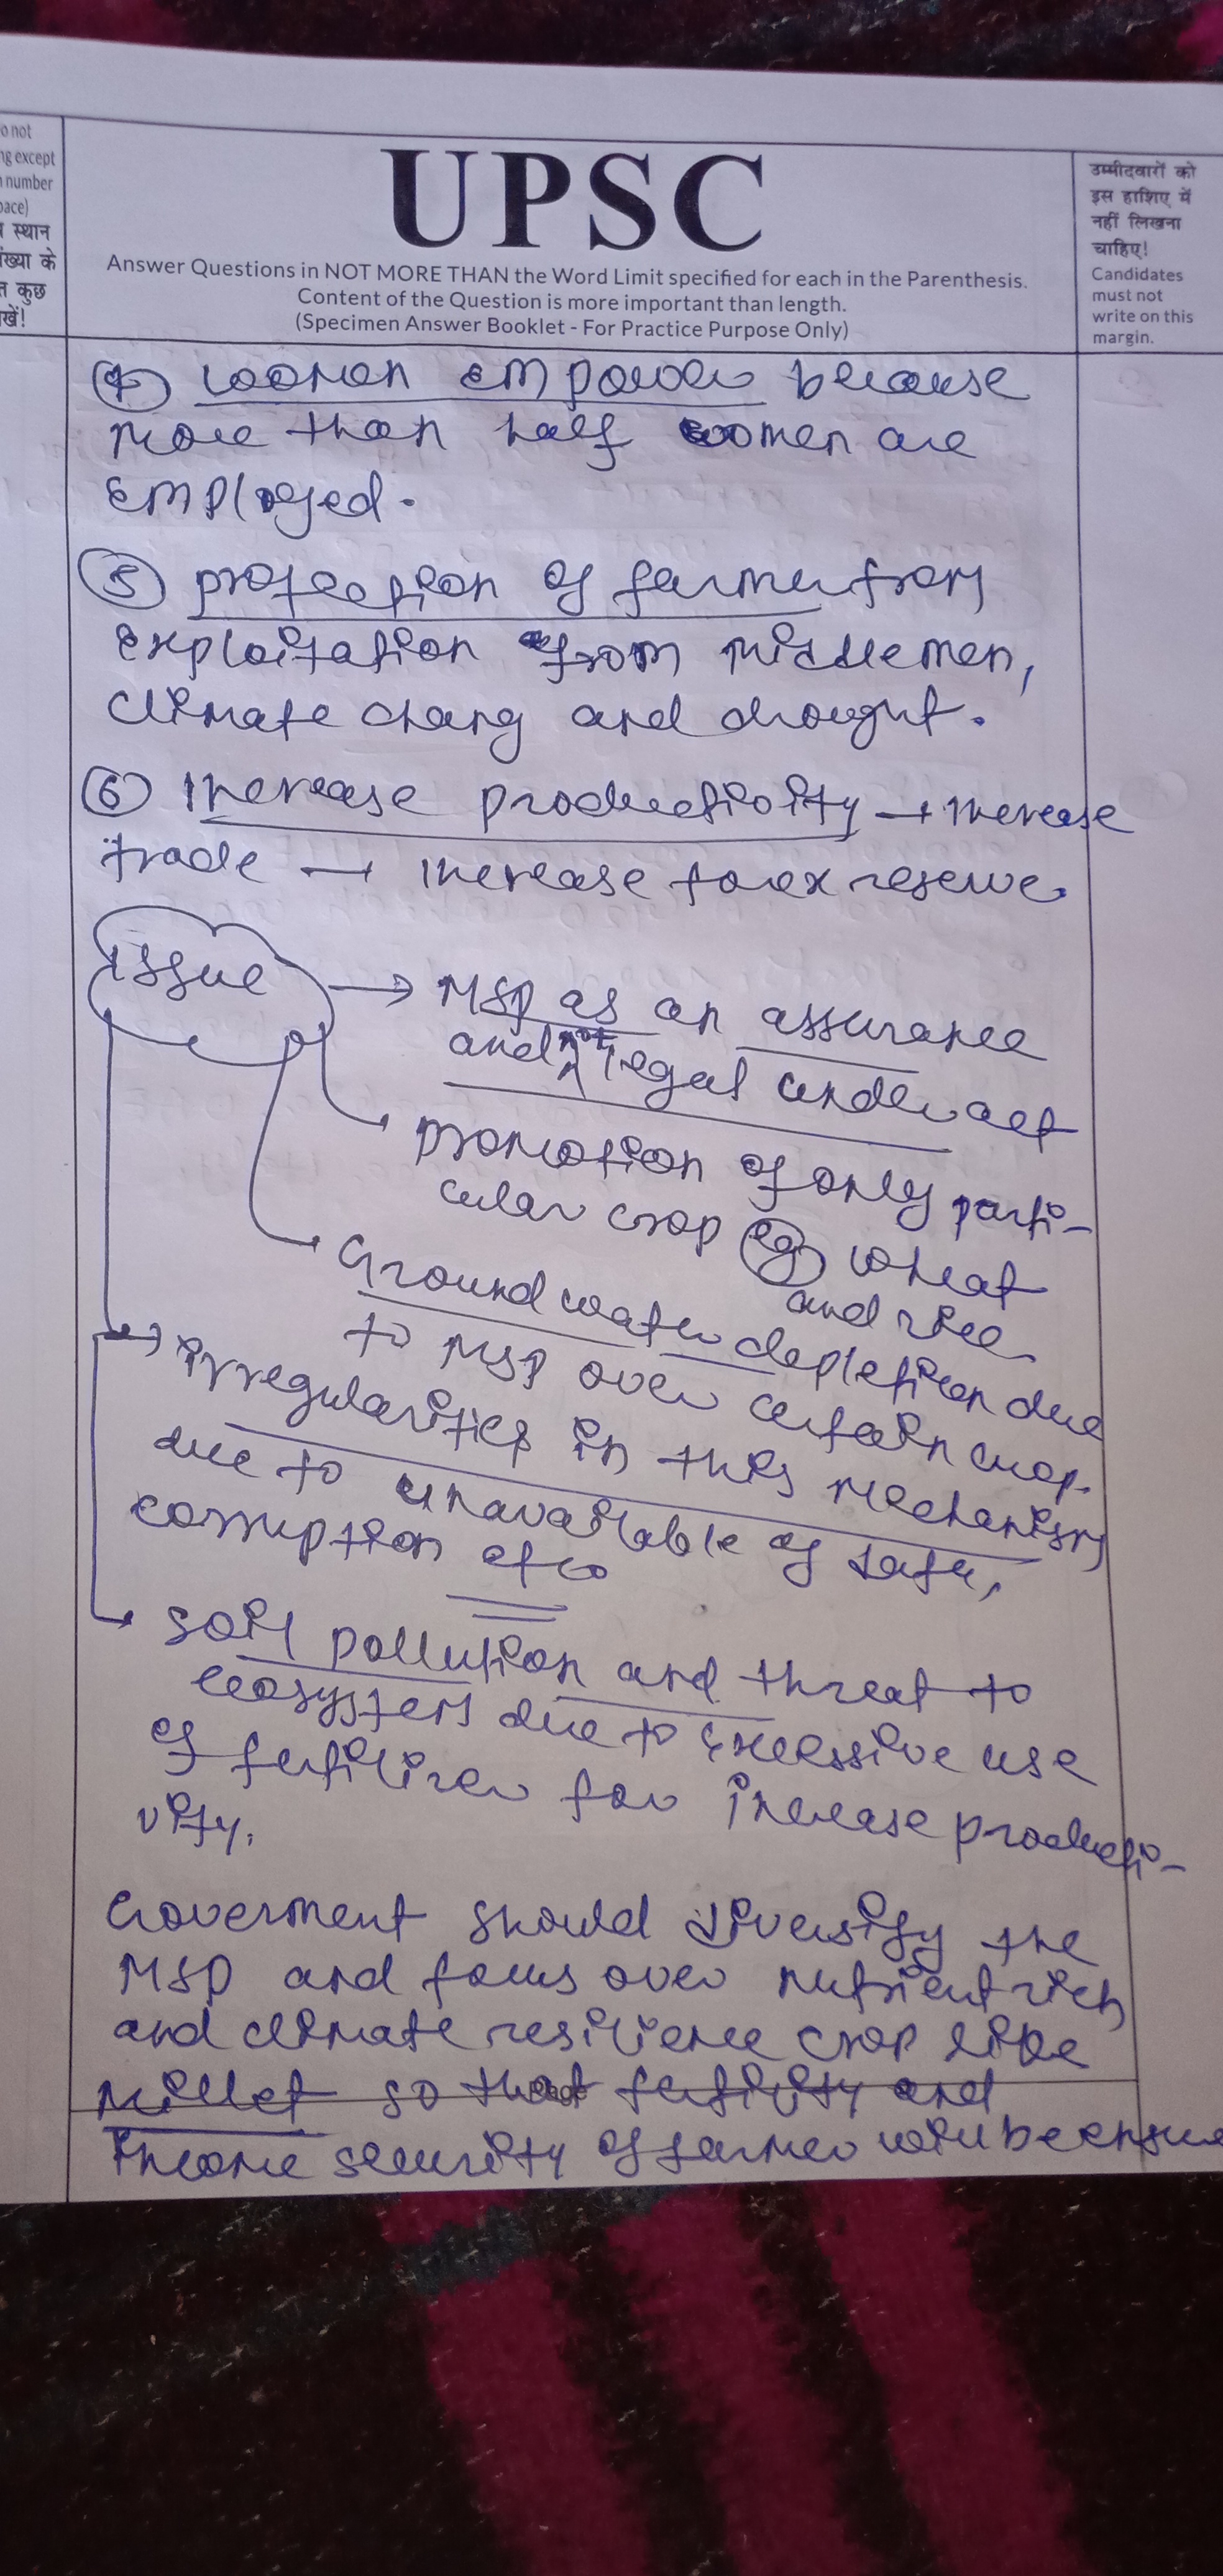 o not
ng except
n number
pace)
स्थान
ंख्या के
त कुछ
खें!
UPSC
Answer Questions in NOT MORE THAN the Word Limit specified for each in the Parenthesis.
Content of the Question is more important than length.
(Specimen Answer Booklet - For Practice Purpose Only)
उम्मीदवारों को
इस हाशिए में
नहीं लिखना
चाहिए!
Candidates
must not
write on this
margin.
④ women empower because
more than half women are
employed.
⑤ protection of farmer from
exploitation from middlemen,
climate chang and drought.
⑥ Increase productivity → increase
trade → increase forex reserve.
issue → MSP as an assurance
and not legal under act
promotion of only parti-
cular crop eg wheat
and rice
Ground water depletion due
to MSP over certain crop.
irregularities in this mechanism
due to unavailable of data,
corruption etc
soil pollution and threat to
ecosystem due to excessive use
of fertilizer for increase producti-
vity.
Goverment should diversify the
MSP and focus over nutrient rich
and climate resilience crop like
millet so that fertility and
income security of farmer will be ensure